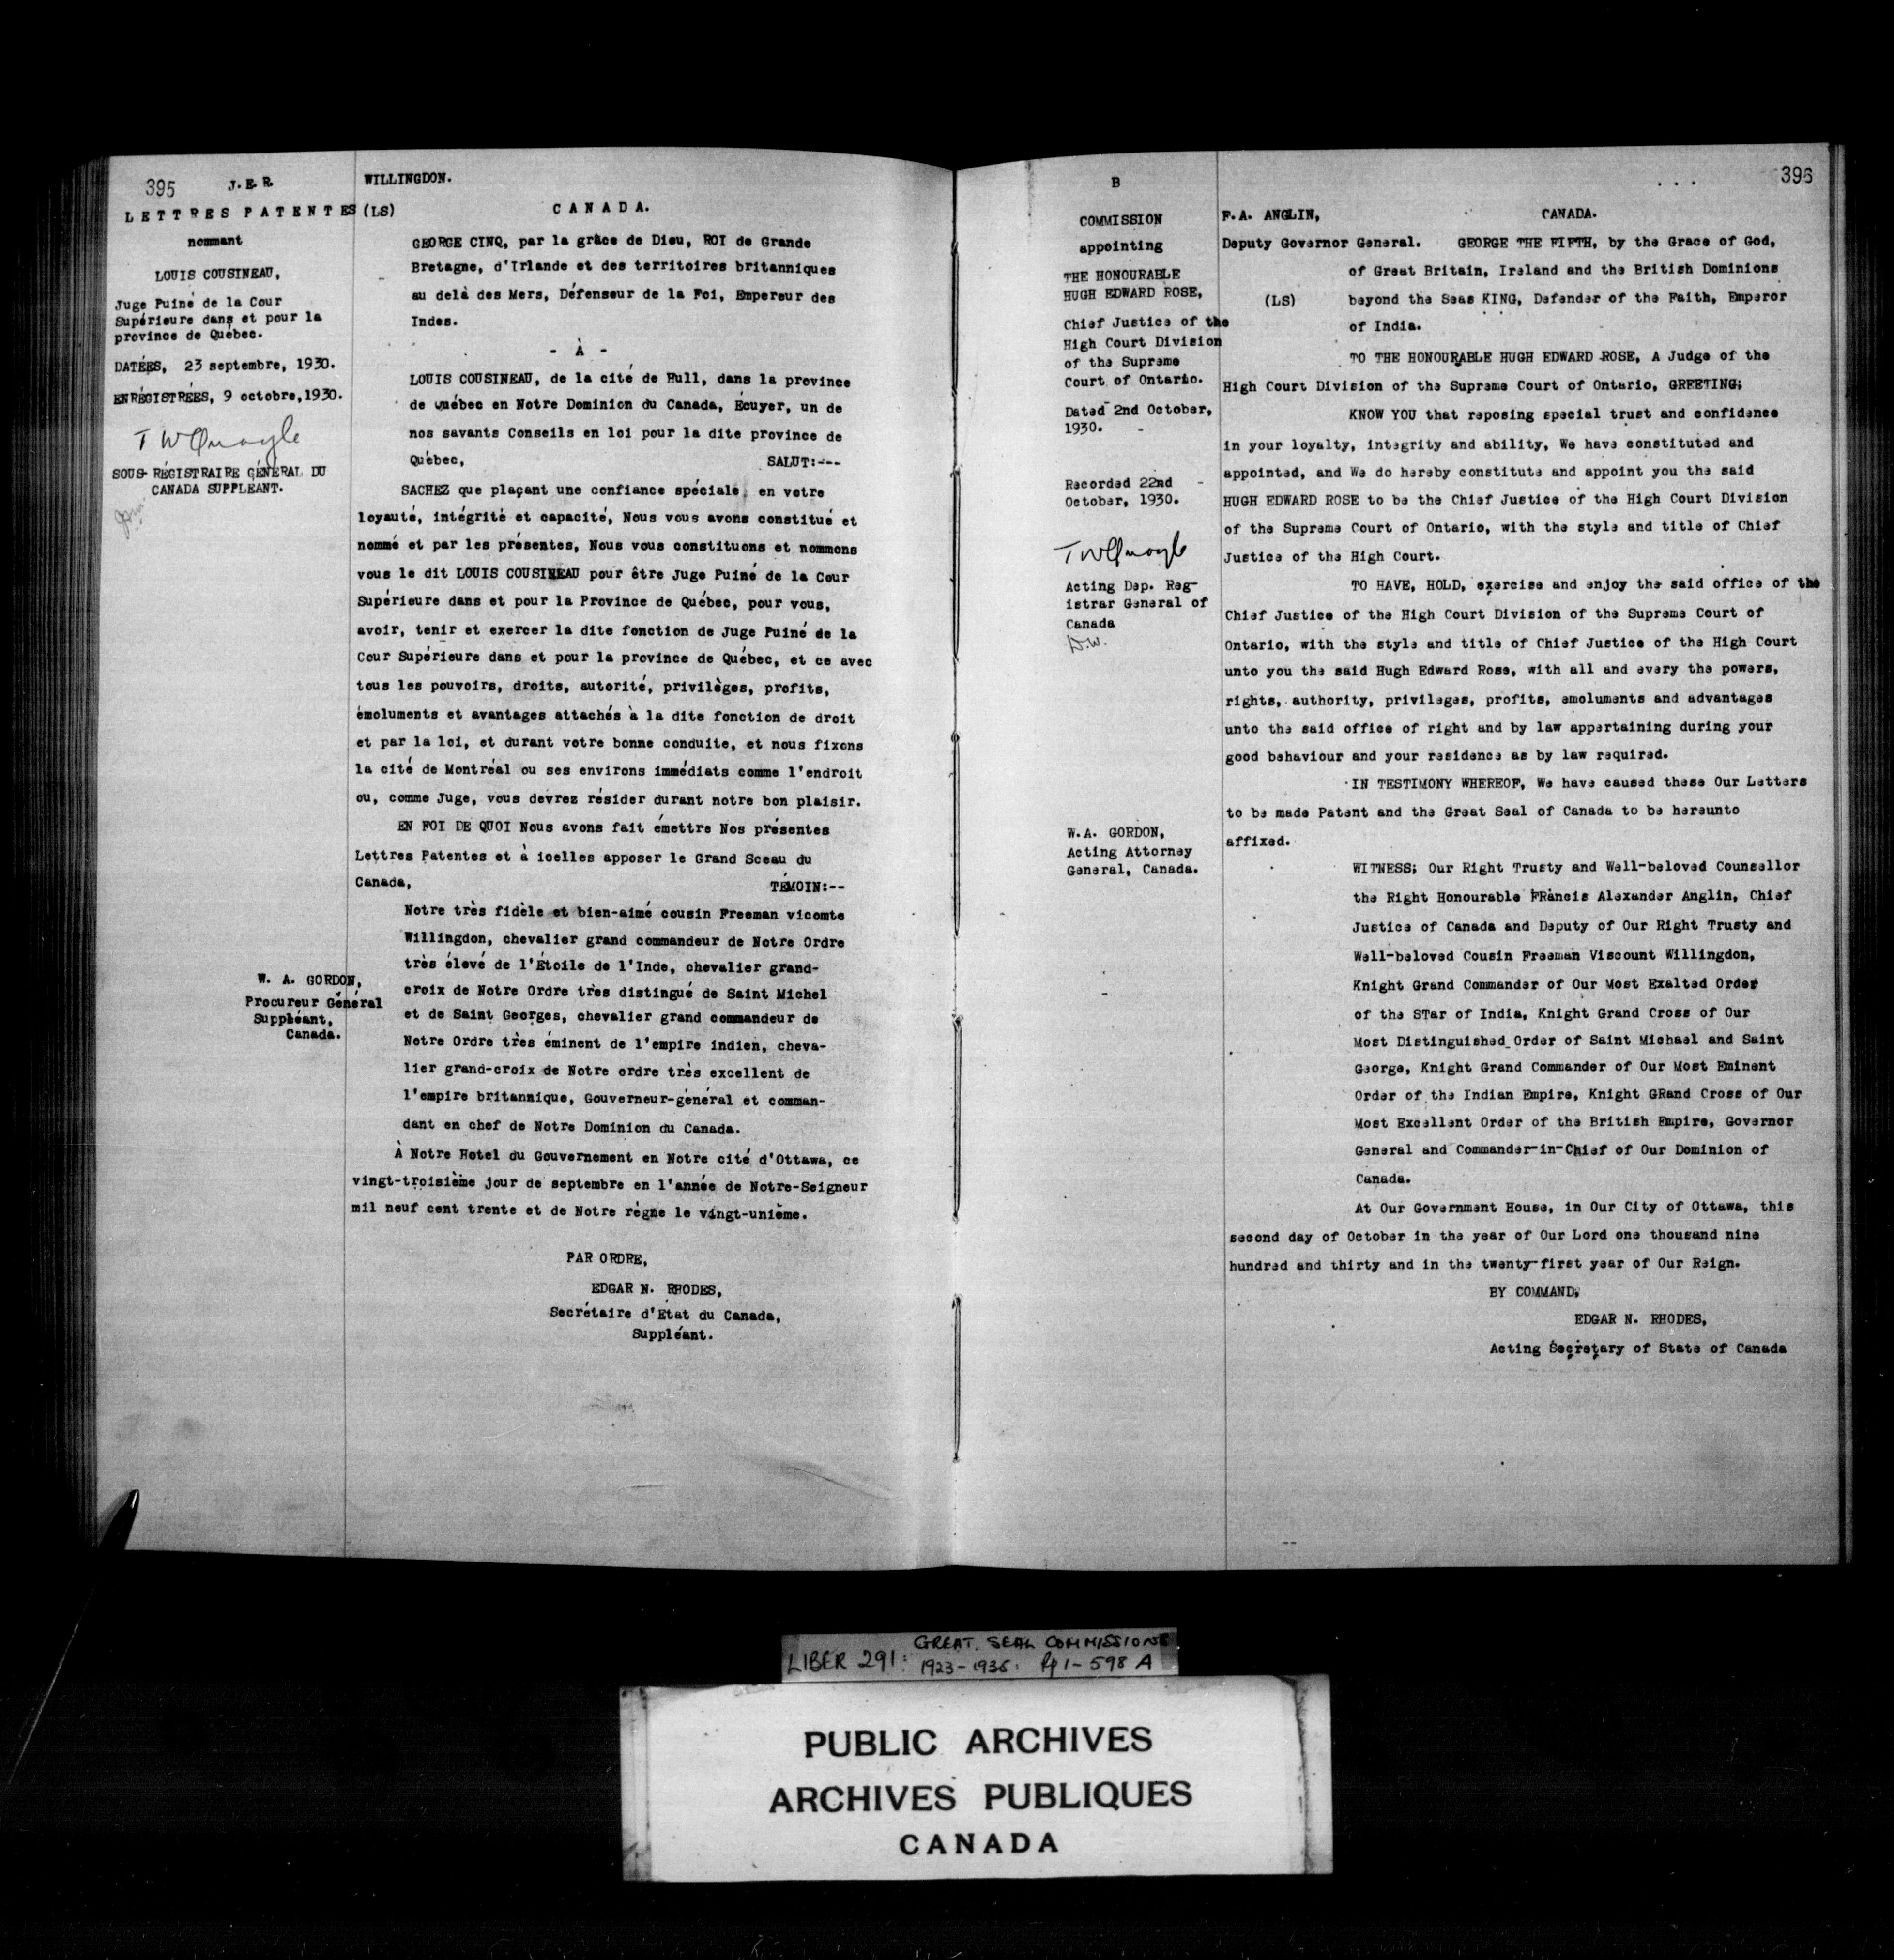 395
J.E.R.
LETTRES PATENTES
nommant
LOUIS COUSINEAU,
Juge Puiné de la Cour
Supérieure dans et pour la
province de Québec.
DATÉES, 23 septembre, 1930.
ENRÉGISTRÉES, 9 octobre,1930.
T W Quayle
SOUS-RÉGISTRAIRE GÉNÉRAL DU
CANADA SUPPLEANT.
W. A. GORDON,
Procureur Général
Suppléant,
Canada.
WILLINGDON.
(LS)
CANADA.
GEORGE CINQ, par la grâce de Dieu, ROI de Grande
Bretagne, d'Irlande et des territoires britanniques
au delà des Mers, Défenseur de la Foi, Empereur des
Indes.
- À -
LOUIS COUSINEAU, de la cité de Hull, dans la province
de Québec en Notre Dominion du Canada, Écuyer, un de
nos savants Conseils en loi pour la dite province de
Québec, SALUT:---
SACHEZ que plaçant une confiance spéciale en votre
loyauté, intégrité et capacité, Nous vous avons constitué et
nommé et par les présentes, Nous vous constituons et nommons
vous le dit LOUIS COUSINEAU pour être Juge Puiné de la Cour
Supérieure dans et pour la Province de Québec, pour vous,
avoir, tenir et exercer la dite fonction de Juge Puiné de la
Cour Supérieure dans et pour la province de Québec, et ce avec
tous les pouvoirs, droits, autorité, privilèges, profits,
émoluments et avantages attachés à la dite fonction de droit
et par la loi, et durant votre bonne conduite, et nous fixons
la cité de Montréal ou ses environs immédiats comme l'endroit
ou, comme Juge, vous devrez résider durant notre bon plaisir.
EN FOI DE QUOI Nous avons fait émettre Nos présentes
Lettres Patentes et à icelles apposer le Grand Sceau du
Canada, TÉMOIN:--
Notre très fidèle et bien-aimé cousin Freeman vicomte
Willingdon, chevalier grand commandeur de Notre Ordre
très élevé de l'Étoile de l'Inde, chevalier grand-
croix de Notre Ordre très distingué de Saint Michel
et de Saint Georges, chevalier grand commandeur de
Notre Ordre très éminent de l'empire indien, cheva-
lier grand-croix de Notre ordre très excellent de
l'empire britannique, Gouverneur-général et comman-
dant en chef de Notre Dominion du Canada.
À Notre Hotel du Gouvernement en Notre cité d'Ottawa, ce
vingt-troisième jour de septembre en l'année de Notre-Seigneur
mil neuf cent trente et de Notre règne le vingt-unième.
PAR ORDRE,
EDGAR N. RHODES,
Secrétaire d'État du Canada,
Suppléant.
B
COMMISSION
appointing
THE HONOURABLE
HUGH EDWARD ROSE,
Chief Justice of the
High Court Division
of the Supreme
Court of Ontario.
Dated 2nd October,
1930.
Recorded 22nd
October, 1930.
T W Quayle
Acting Dep. Reg-
istrar General of
Canada
D.W.
W.A. GORDON,
Acting Attorney
General, Canada.
396
F.A. ANGLIN, CANADA.
Deputy Governor General. GEORGE THE FIFTH, by the Grace of God,
of Great Britain, Ireland and the British Dominions
(LS) beyond the Seas KING, Defender of the Faith, Emperor
of India.
TO THE HONOURABLE HUGH EDWARD ROSE, A Judge of the
High Court Division of the Supreme Court of Ontario, GREETING;
KNOW YOU that reposing special trust and confidence
in your loyalty, integrity and ability, We have constituted and
appointed, and We do hereby constitute and appoint you the said
HUGH EDWARD ROSE to be the Chief Justice of the High Court Division
of the Supreme Court of Ontario, with the style and title of Chief
Justice of the High Court.
TO HAVE, HOLD, exercise and enjoy the said office of the
Chief Justice of the High Court Division of the Supreme Court of
Ontario, with the style and title of Chief Justice of the High Court
unto you the said Hugh Edward Rose, with all and every the powers,
rights, authority, privileges, profits, emoluments and advantages
unto the said office of right and by law appertaining during your
good behaviour and your residence as by law required.
IN TESTIMONY WHEREOF, We have caused these Our Letters
to be made Patent and the Great Seal of Canada to be hereunto
affixed.
WITNESS; Our Right Trusty and Well-beloved Counsellor
the Right Honourable FRancis Alexander Anglin, Chief
Justice of Canada and Deputy of Our Right Trusty and
Well-beloved Cousin Freeman Viscount Willingdon,
Knight Grand Commander of Our Most Exalted Order
of the STar of India, Knight Grand Cross of Our
Most Distinguished Order of Saint Michael and Saint
George, Knight Grand Commander of Our Most Eminent
Order of the Indian Empire, Knight GRand Cross of Our
Most Excellent Order of the British Empire, Governor
General and Commander-in-Chief of Our Dominion of
Canada.
At Our Government House, in Our City of Ottawa, this
second day of October in the year of Our Lord one thousand nine
hundred and thirty and in the twenty-first year of Our Reign.
BY COMMAND,
EDGAR N. RHODES,
Acting Secretary of State of Canada
LIBER 291: GREAT SEAL COMMISSIONS
1923-1935: Pp 1-598 A
PUBLIC ARCHIVES
ARCHIVES PUBLIQUES
CANADA